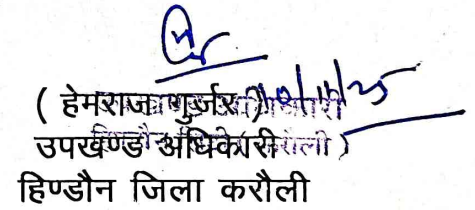 10/11/25
( हेमराज गुर्जर )
उपखण्ड अधिकारी
हिण्डौन जिला करौली